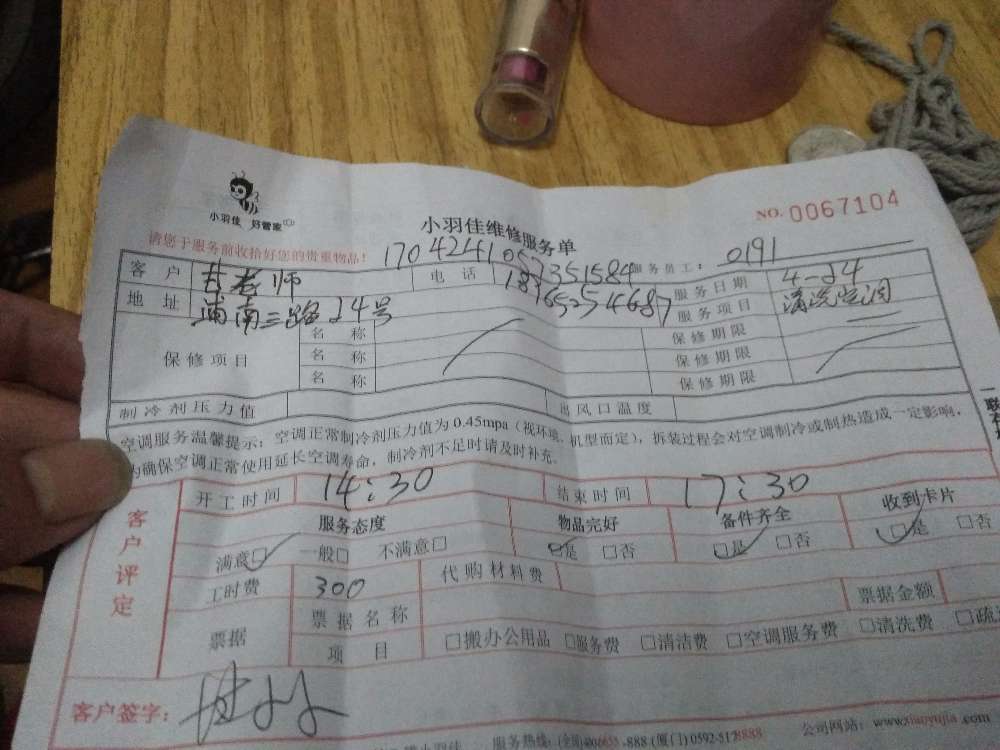 小羽佳 好管家
小羽佳维修服务单
NO. 0067104
请您于服务前收拾好您的贵重物品!
1704241057351584 服务员工: 0191
客户 甘老师 电话 18965254687 服务日期 4-24
地址 浦南三路24号 服务项目 清洗空调
保修项目 名称 保修期限
名称 保修期限
名称 保修期限
制冷剂压力值 出风口温度
空调服务温馨提示:空调正常制冷剂压力值为0.45mpa(视环境、机型而定),拆装过程会对空调制冷或制热造成一定影响,
为确保空调正常使用延长空调寿命,制冷剂不足时请及时补充。
一联
客户评定
开工时间 14:30 结束时间 17:30
服务态度 物品完好 备件齐全 收到卡片
满意□ 一般□ 不满意□ □是 □否 □是 □否 □是 □否
工时费 300 代购材料费
票据 票据名称 票据金额
项目 □搬办公用品 □服务费 □清洁费 □空调服务费 □清洗费 □疏
客户签字:
服务热线: -888 (厦门) 0592-5178888 公司网站: www.xiaoyujia.com